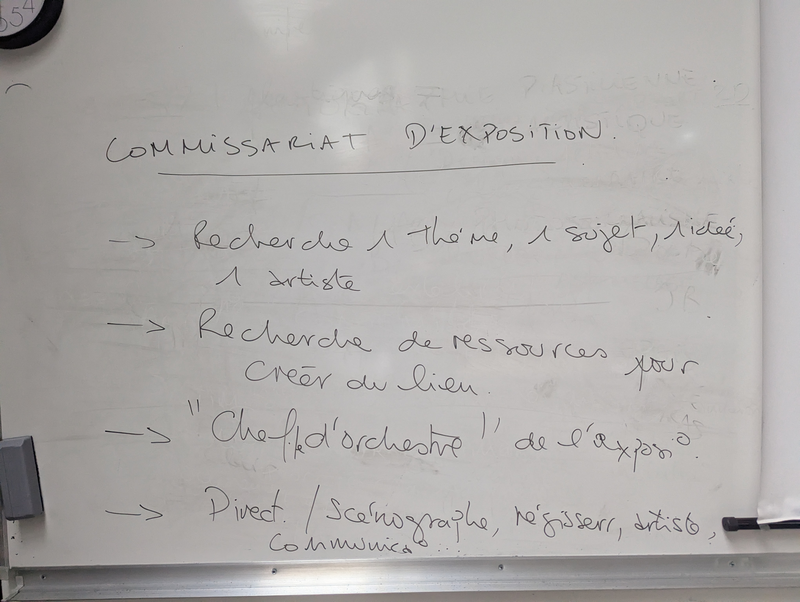 COMMISSARIAT D'EXPOSITION.
-> Recherche 1 thème, 1 sujet, 1 idée,
1 artiste
-> Recherche de ressources pour
créer du lien.
-> "Chef d'orchestre" de l'expos°.
-> Direct. / Scénographe, régisseur, artiste,
communica°...